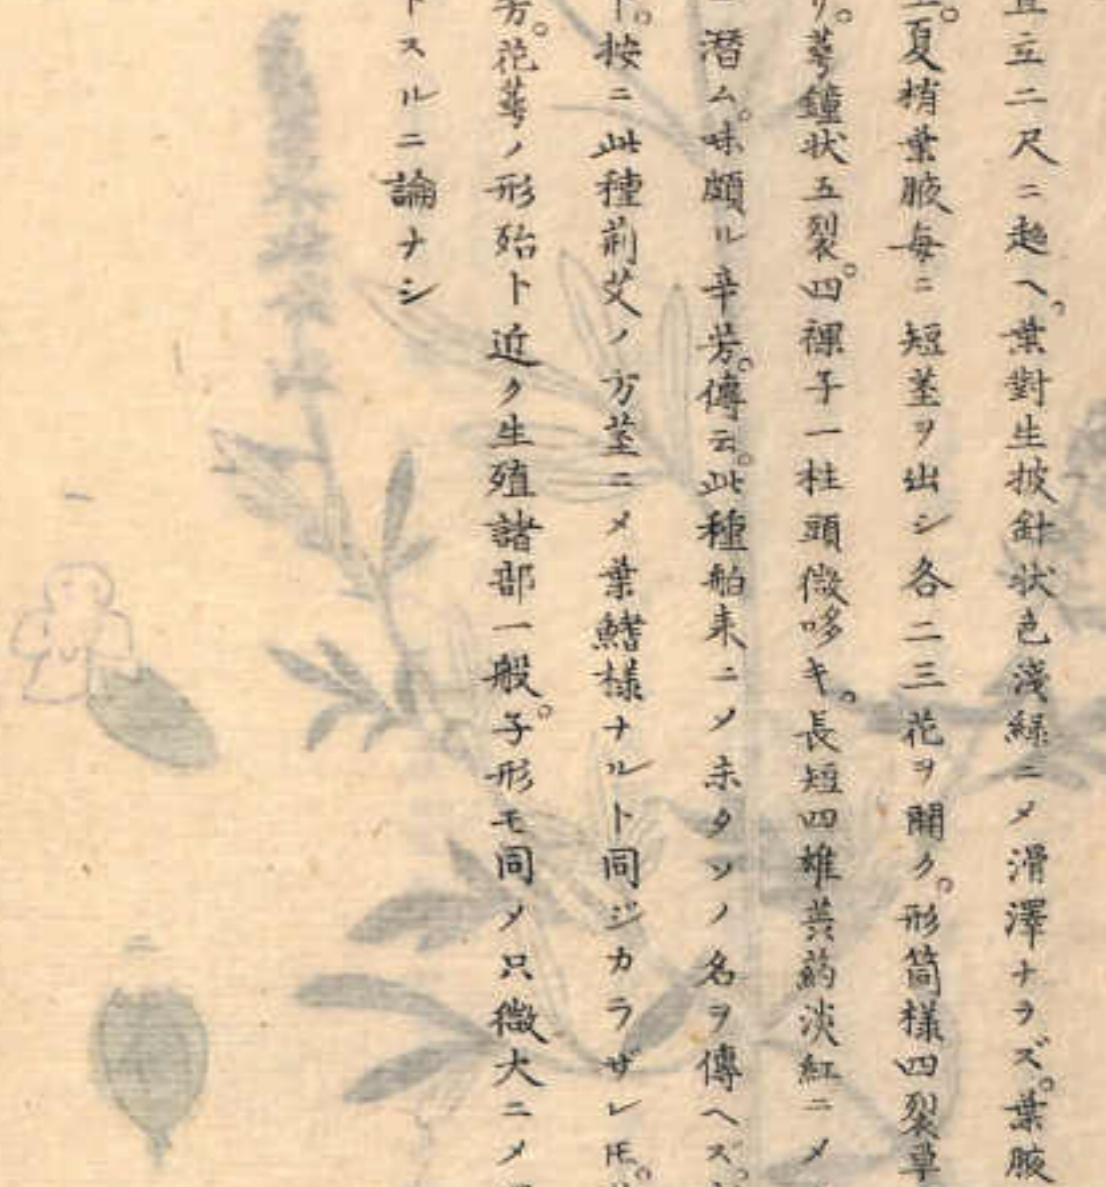 直立二尺ニ超ヘ、葉對生披針状色淺緑ニメ滑澤ナラズ。葉腋
。夏梢葉腋毎ニ短莖ヲ出シ各二三花ヲ開ク。形筒樣四裂
リ。萼鐘状五裂。四裸子一柱頭微哆キ。長短四雄蕊葯淡紅ニメ
潜ム。味頗ル辛芳。傳云。此種舶来ニメ未タソノ名ヲ傳ヘズ。
ト。按ニ此種荊芥ノ方莖ニメ葉鰭樣ナルト同ジカラザレ𪜈。
芳。花萼ノ形殆ト近ク生殖諸部一般。子形モ同メ只微大ニメ
トスルニ論ナシ